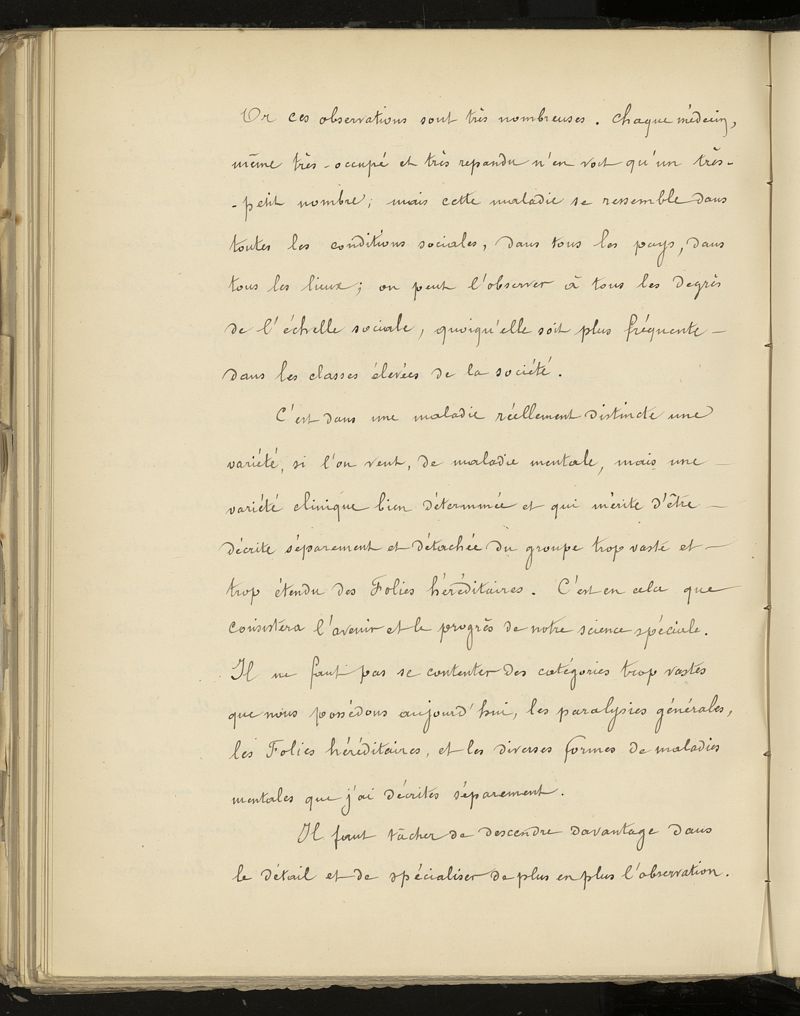 Or ces observations sont très nombreuses. Chaque médecin,
même très-occupé et très repandu n'en voit qu'un très-
-petit nombre; mais cette maladie se ressemble dans
toutes les conditions sociales, dans tous les pays, dans
tous les lieux; on peut l'observer à tous les degrés
de l'échelle sociale, quoiqu'elle soit plus fréquente –
dans les classes élevées de la société.
C'est dans une maladie réellement distincte une
variété, si l'on veut, de maladie mentale, mais une –
variété clinique bien déterminée et qui mérite d'être –
décrite séparement et détachée du groupe trop vaste et –
trop étendu des Folies héréditaires. C'est en cela que
consistera l'avenir et le progrès de notre science spéciale.
Il ne faut pas se contenter des catégories trop vastes
que nous possédons aujourd'hui, les paralysies générales,
les Folies héréditaires, et les diverses formes de maladies
mentales que j'ai décrites séparement.
Il faut tâcher de descendre davantage dans
le détail et de spécialiser de plus en plus l'observation.